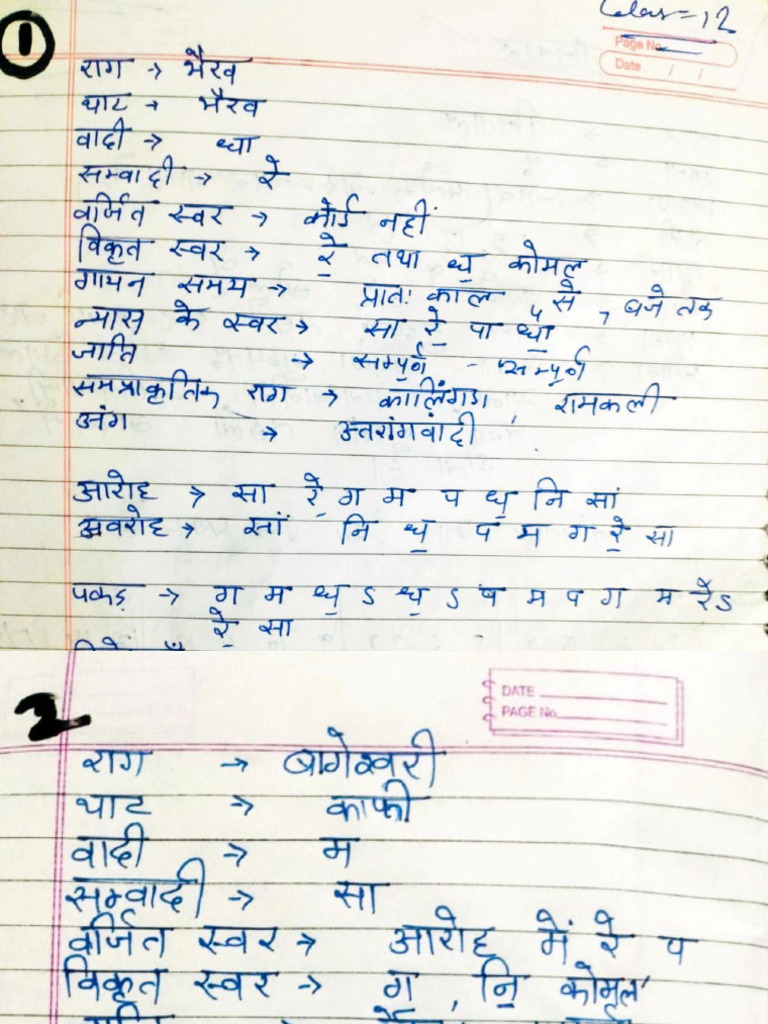 1
Class = 12
Page No.
Date / /
राग → भैरव
थाट → भैरव
वादी → ध॒ा
सम्वादी → रे॒
वर्जित स्वर → कोई नहीं
विकृत स्वर → रे॒ तथा ध॒ कोमल
गायन समय → प्रातः काल 4 से 7 बजे तक
न्यास के स्वर → सा रे॒ पा ध॒ा
जाति → सम्पूर्ण - सम्पूर्ण
समप्राकृतिक राग → कालिंगडा , रामकली
अंग → उत्तरांगवादी
आरोह → सा रे॒ ग म प ध॒ नि सां
अवरोह → सां नि ध॒ प म ग रे॒ सा
पकड़ → ग म ध॒ ऽ ध॒ ऽ प म प ग म रे ऽ
रे॒ सा
2
DATE
PAGE No.
राग → बागेश्वरी
थाट → काफी
वादी → म
सम्वादी → सा
वर्जित स्वर → आरोह में रे प
विकृत स्वर → ग॒ , नि॒ कोमल